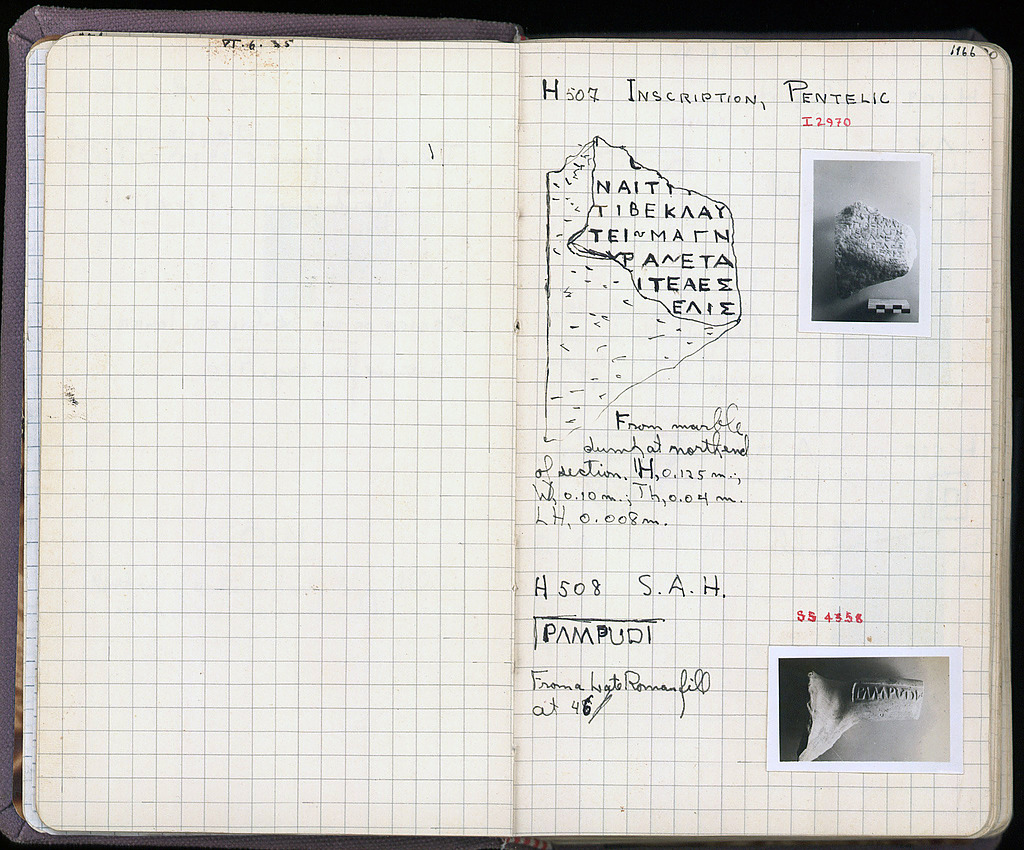 1166
H 507 INSCRIPTION, PENTELIC
I 2970
ΝΑΙΤΙ
ΤΙΒΕΚΛΑΥ
ΤΕΙ~ΜΑΓΝ
ΡΑΝΕΤΑ
ΙΤΕΛΕΣ
ΕΛΙΣ
From marble
dump at north end
of section. H, 0.125 m.;
W, 0.10 m.; Th, 0.04 m.
LH, 0.008 m.
H 508 S.A.H.
SS 4358
PAMPUDI
From a Late Roman fill
at 46/
PAMPUDI